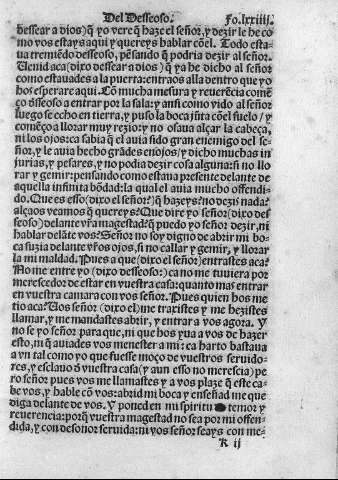 Del Desseoso. Fo. lxxiiij.
dessear a dios) q̃ yo vereq̃ haze el señor, y dezir le he co
mo vos estays aqui y quereys hablar cõel. Todo esta-
ua tremiẽdo desseoso, pẽsando q̃ podria dezir al señor.
Uenid aca (dixo dessear a dios) q̃ ya he dicho al señor
como estauades a la puerta: entraos alla dentro que yo
hos esperare aqui. Cõ mucha mesura y reuerẽcia comẽ
ço desseoso a entrar por la sala: y ansi como vido al señor
luego se echo en tierra, y puso la boca jũta cõel suelo/ y
comẽço a llorar muy rezio: y no osaua alçar la cabeça,
ni los ojos: ca sabia q̃ el auia sido gran enemigo del se-
ñor, y le auia hecho grãdes enojos/ y dicho muchas in
jurias, y pesares, y no podia dezir cosa alguna: si no llo
rar y gemir: pensando como estaua presente delante de
aquella infinita bõdad: la qual el auia mucho offendi-
do. Que es esso (dixo el señor?) q̃ hazeys? no dezis nada?
alçaos veamos q̃ quereys? Que dire yo señor (dixo des
seoso) delante vr̃a magestad? q̃ puedo yo señor dezir, ni
hablar delãte vos? Señor no soy digno de abrir mi bo-
ca suzia delante vr̃os ojos, si no callar y gemir, y llorar
la mi maldad. Pues a que (dixo el señor) entrastes aca?
No me entre yo (dixo desseoso:) ca no me tuviera por
merescedor de estar en vuestra casa: quanto mas entrar
en vuestra camara con vos señor. Pues quien hos me
tio aca? Uos señor (dixo el) me traxistes y me hezistes
llamar, y me mandastes abrir, y entrar a vos agora. Y
no se yo señor para que, ni que hos yua a vos de hazer
esto, ni q̃ auiades vos menester a mi: ca harto bastaua
a vn tal como yo que fuesse moço de vuestros seruido-
res, y esclauo d̃ vuestra casa (y aun esso no merescia) pe
ro señor pues vos me llamastes y a vos plaze q̃ este ca-
be vos, y hable cõ vos: abrid mi boca y enseñad me que
diga delante de vos. Y poned en mi spiritu temor y
reuerencia: porq̃ vuestra magestad no sea por mi offen-
dida, y con desonor seruida: ni vos señor seays con me-
K ij